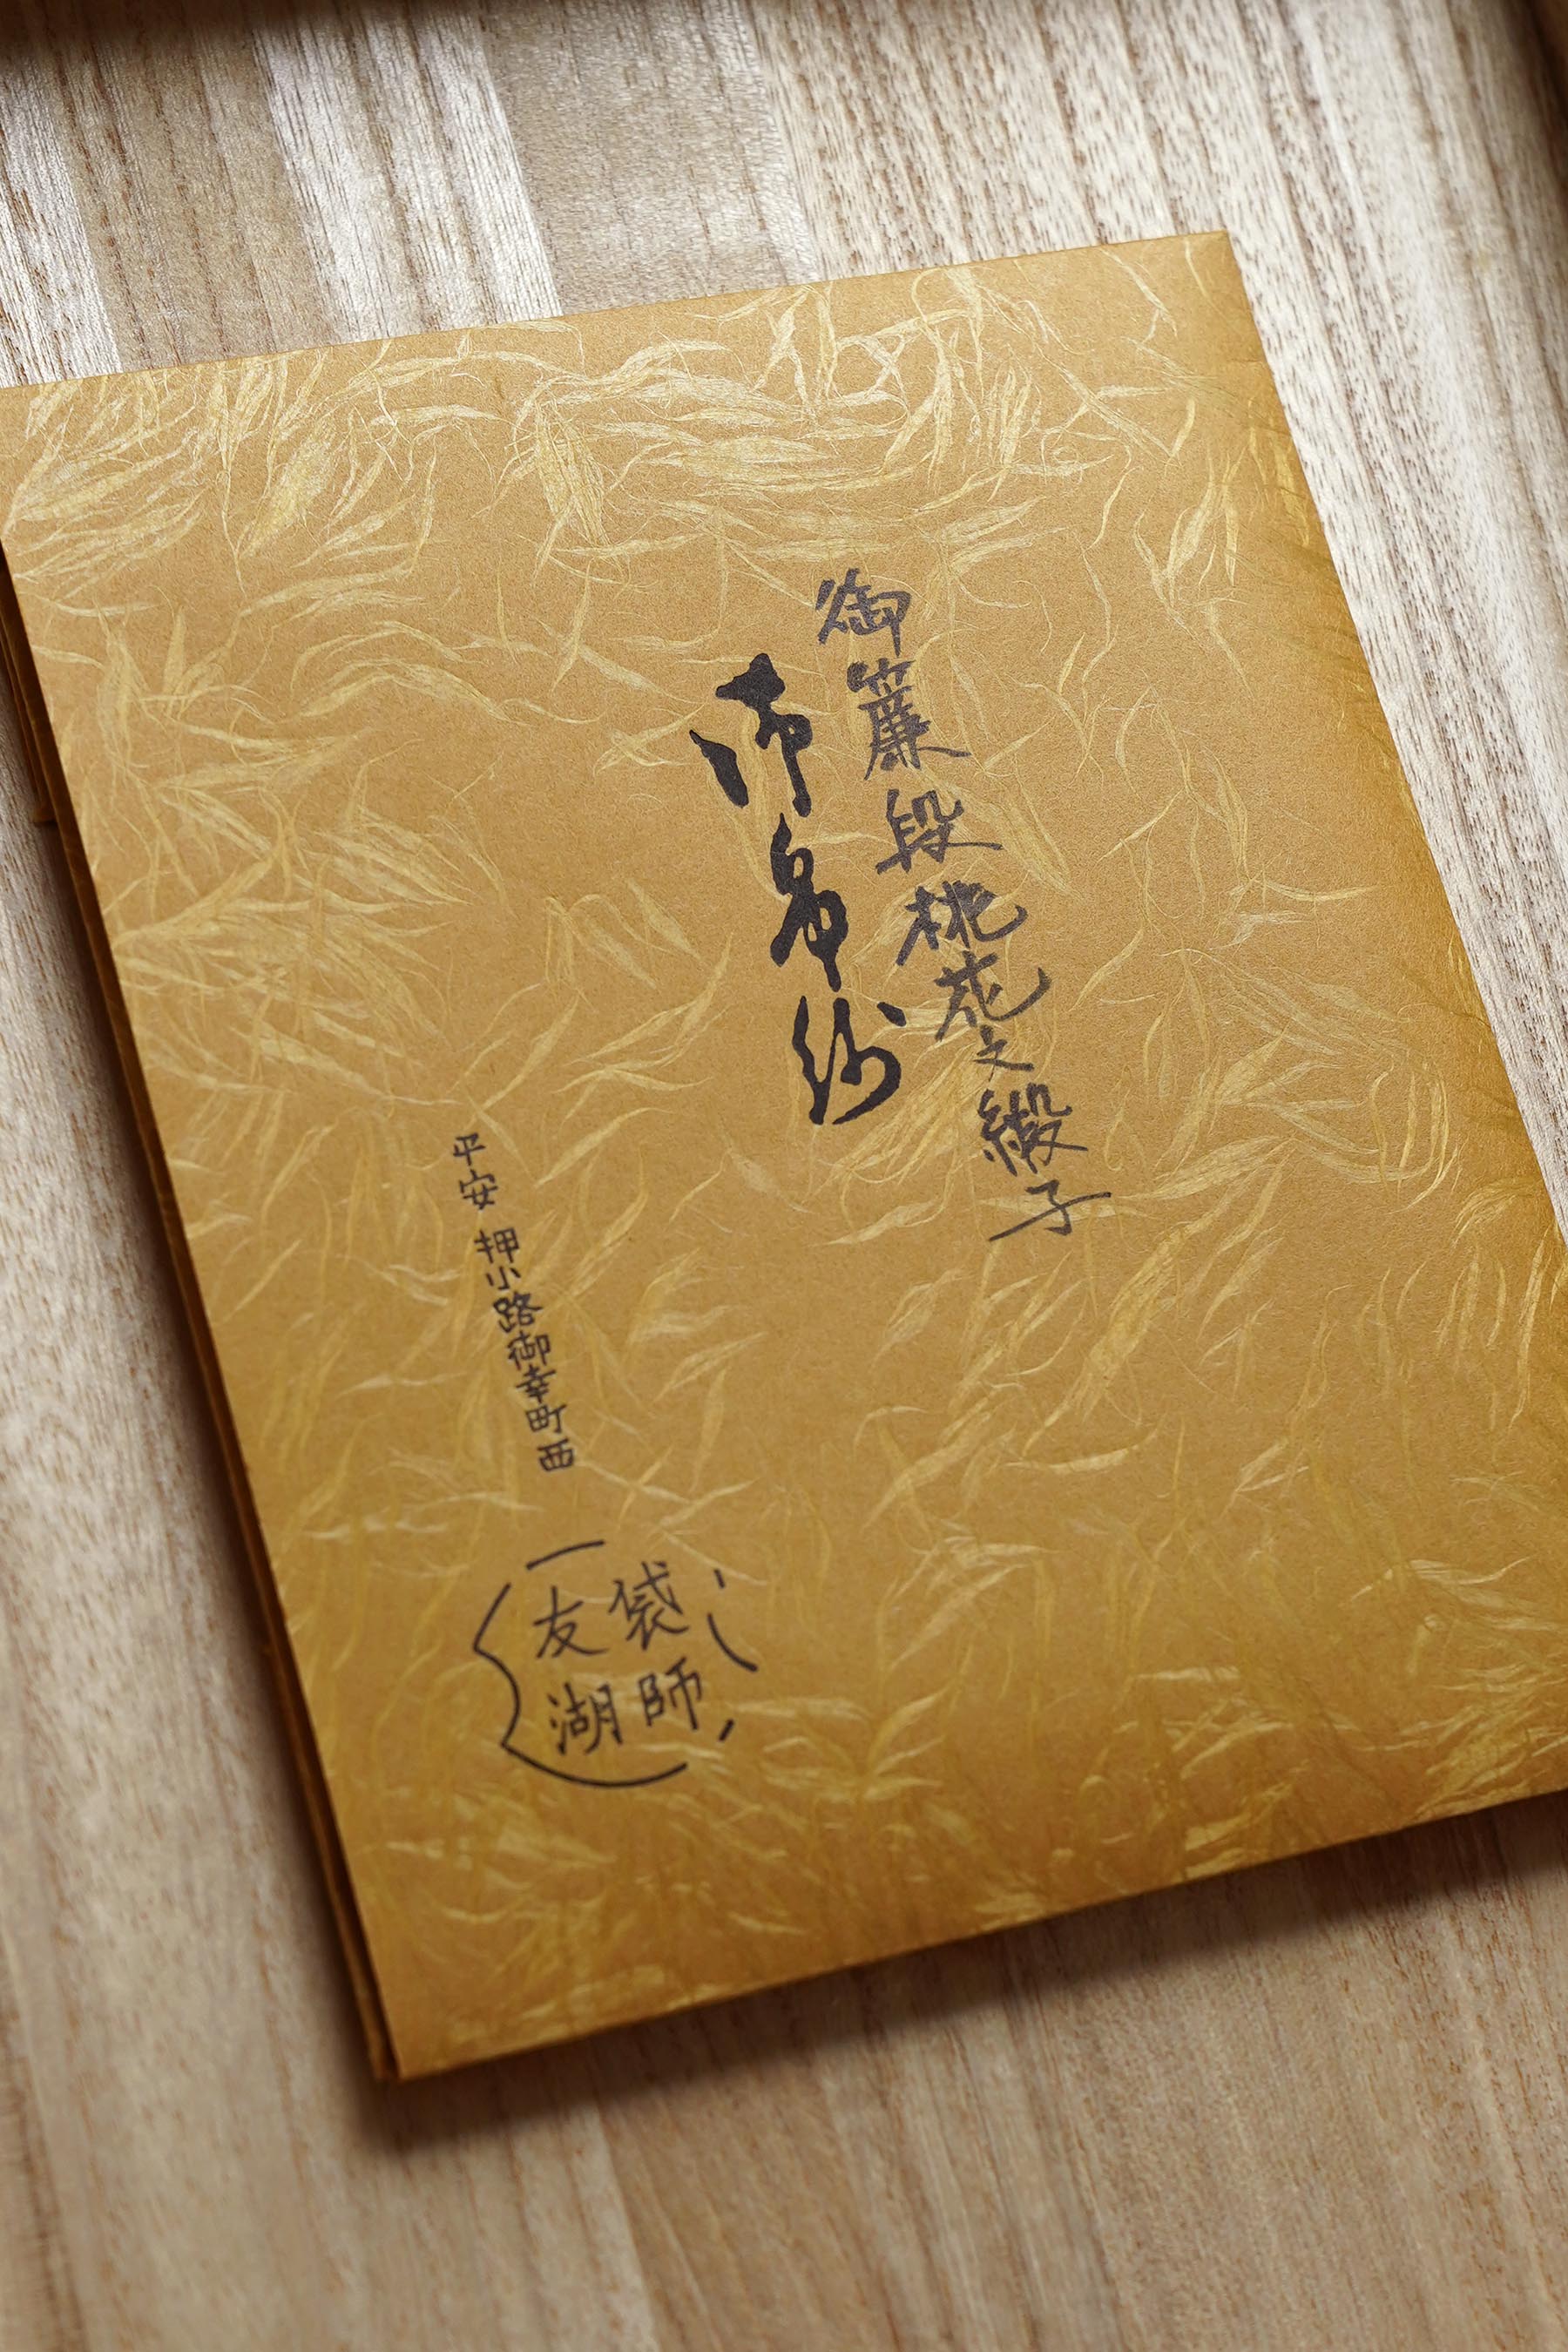 御簾段桃花之緞子
御帛紗
平安 押小路御幸町西
袋師
友湖